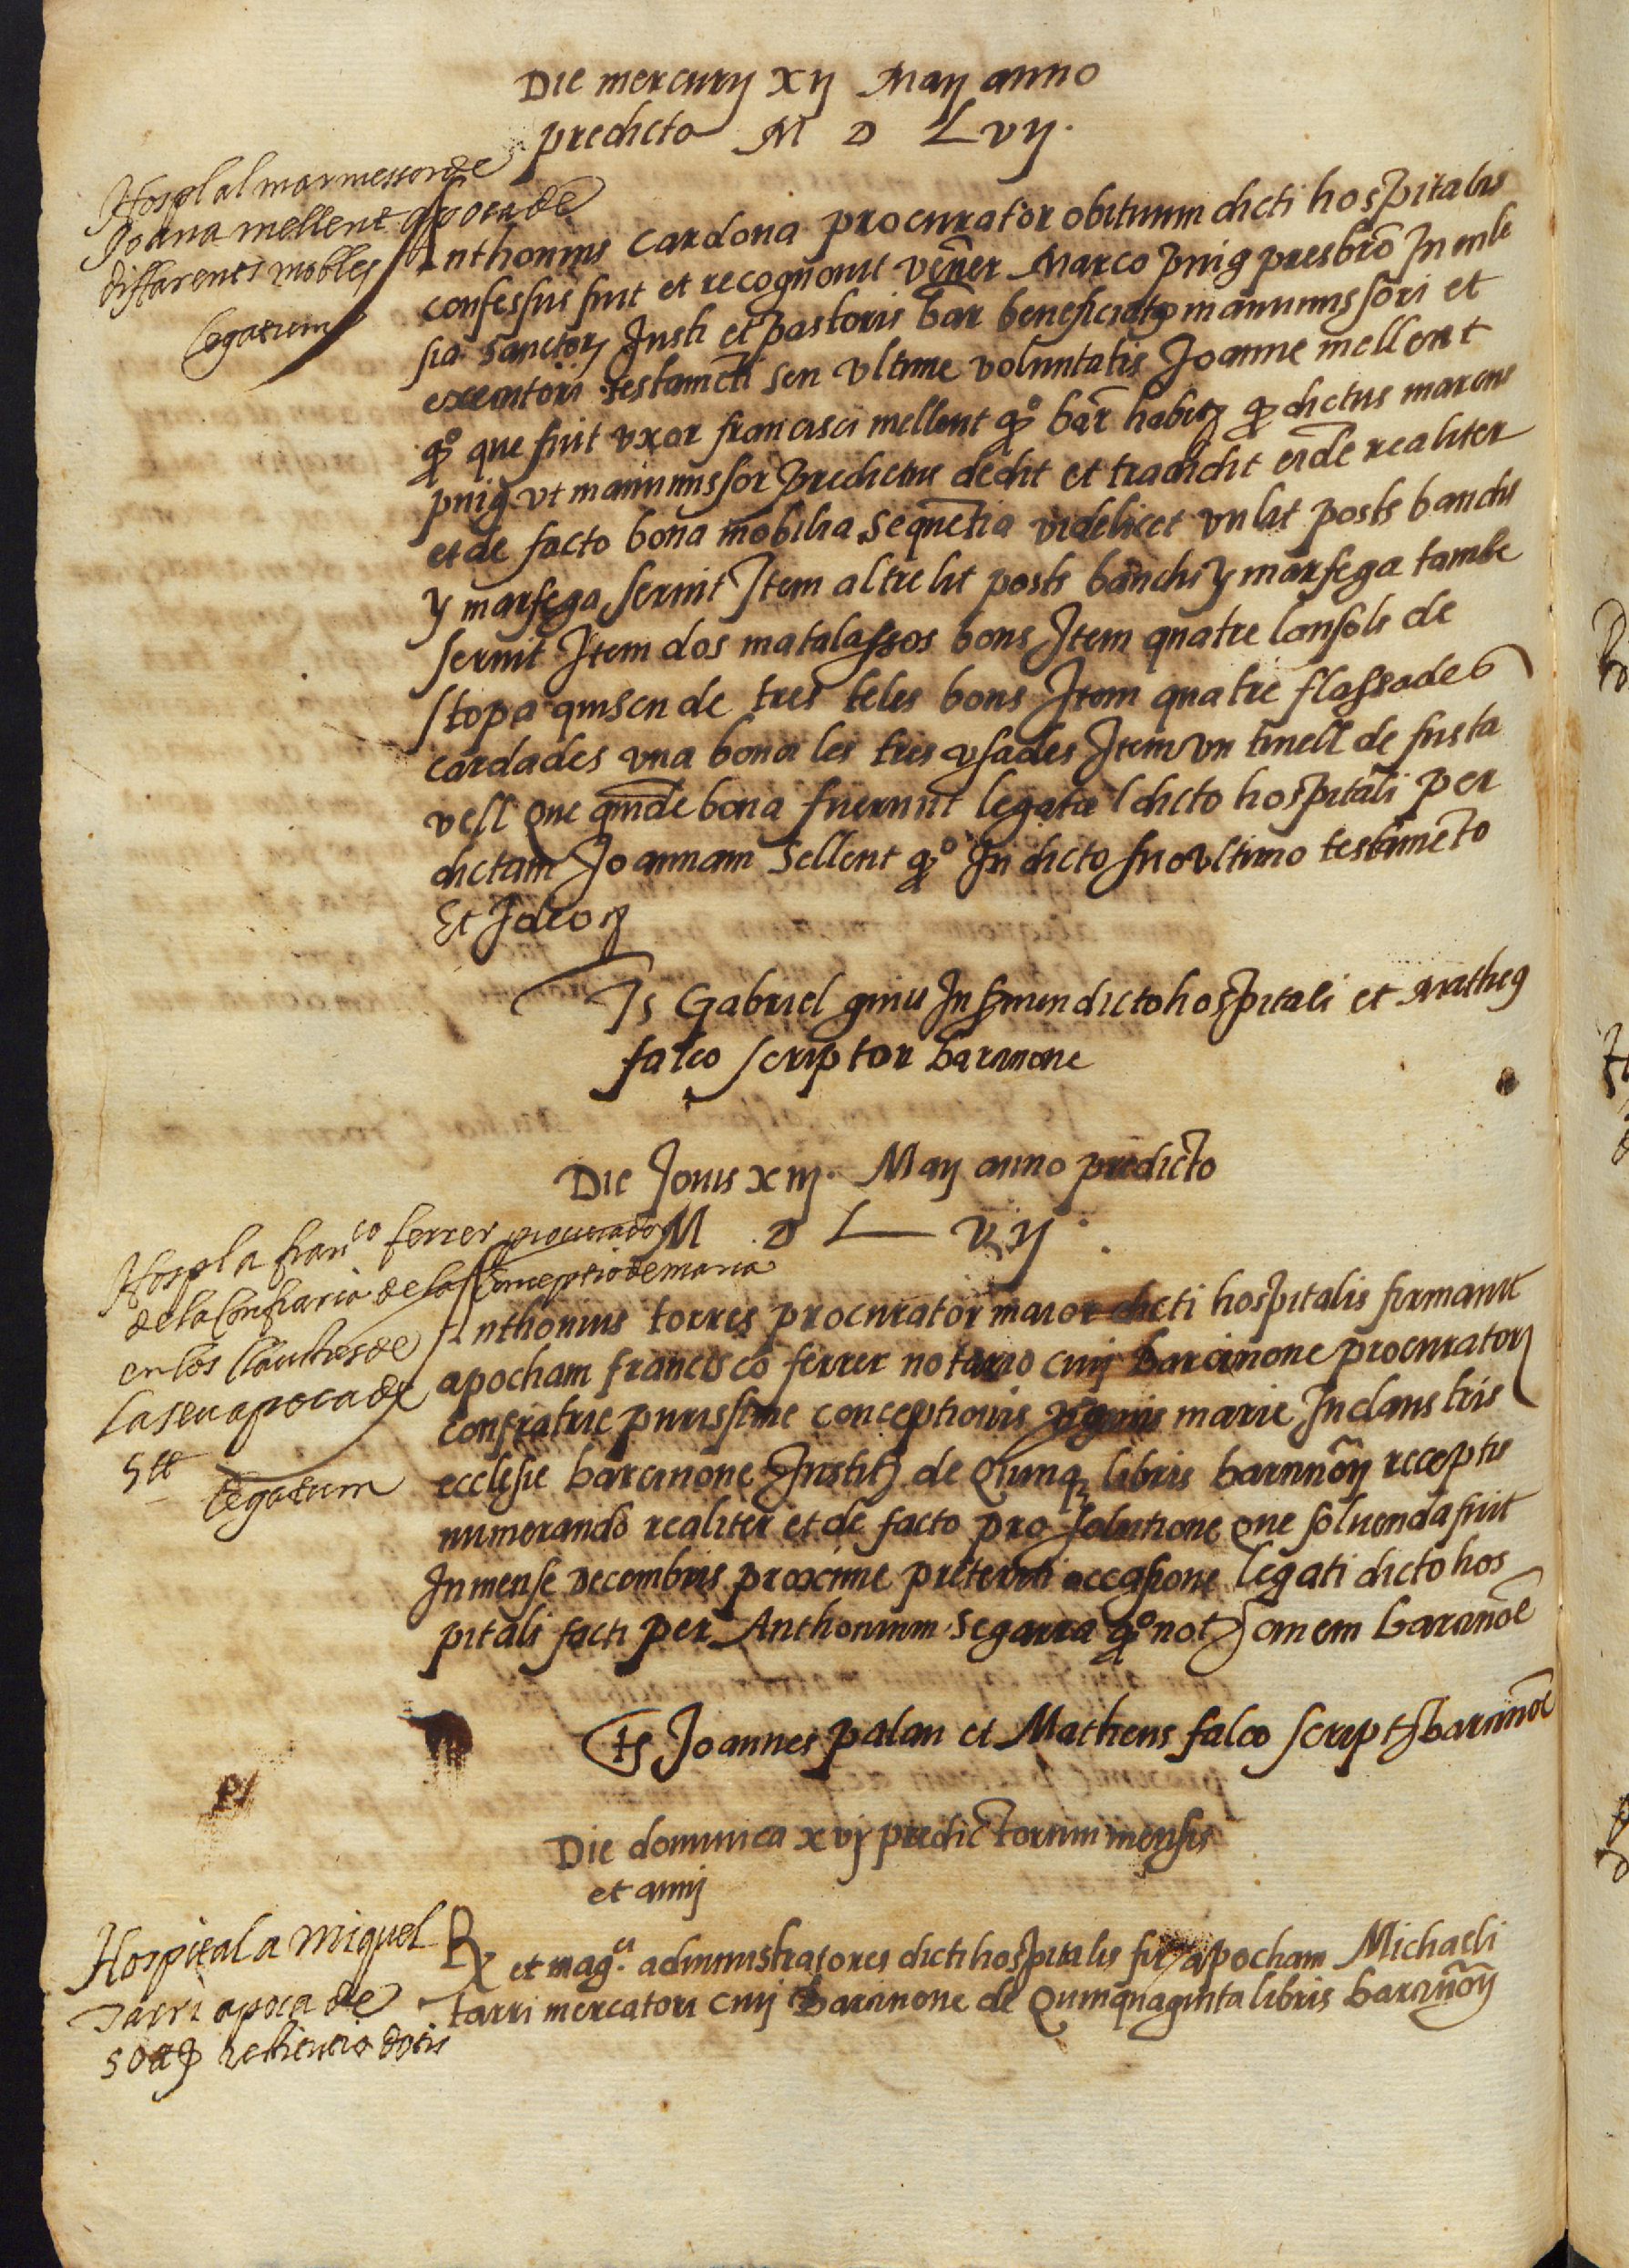 Die mercurij xij Maij anno
predicto M D Lvij.
Hospl al marmessor de
Joana mellent apoca de
differents mobles
Legatum
Anthonius cardona procurator obituum dicti hospitalis
confessus fuit et recognovit vener Marco puig presbro In ecle
sia sanctorj Justi et pastoris bar beneficiato manumissori et
executori testamēti seu ultime voluntatis Joanne mellent
qº que fuit uxor francisci mellent qº bar habitj q dictus marcus
puig ut manumissor predictus dedit et tradidit eidē realiter
et de facto bona mobilia sequētia videlicet un lit posts banchs
y marfega servit Item altre lit posts banchs y marfega tambe
servit Item dos matalassos bons Item quatre lansols de
stopa quiscu de tres teles bons Item quatre flassades
cardades una bona les tres usades Item un tinell de fusta
vell que quidē bona fuerunt legata dicto hospitali per
dictam Joannam Sellent qº In dicto suo ultimo testamēto
Et Ideo
Ts Gabriel giniu In dicto hospitali et Matheus
falco scriptor barcinone
Die Jovis xiij. Maij anno predicto
M D L vij.
Hospl a franco ferrer procurador
de la Confraria de la Conceptio de maria
en los Claustres de
la seu apoca de
5 ll
Legatum
Anthonius torres procurator maior dicti hospitalis firmavit
apocham francisco ferrer notario civi Barcinone procuratorj
confratrie purissime conceptionis virginis marie In claustris
ecclesie barcinone Institj de Quinqz libris barcinonj receptis
numerando realiter et de facto pro solutione que solvenda fuit
In mense decembris proxime preteriti occasione legati dicto hos
pitali facti per Anthonium Segarra qº notj civem barcinoē
ts Joannes palau et Matheus falco scriptj barcinoē
Die dominica xvj predictorum mensis
et annj
Hospital a Miquel
Tarri apoca de
50 ll retencio dotis
Rx et mag.ci administratores dicti hospitalis fir apocham Michaeli
tarri mercatori civi Barcinone de Quinquaginta libris barcinonj